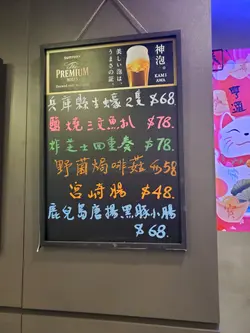 SUNTORY
THE
PREMIUM
MALT'S
美しい泡は、
うまさの証。
神泡。
KAMIAWA
兵庫縣生蠔2隻 $68.
鹽燒三文魚扒 $78.
炸芝士四重奏 $78.
野菌焗啡菇 $58
宮崎腸 $48.
鹿兒島唐揚黑豚小腸
$68.